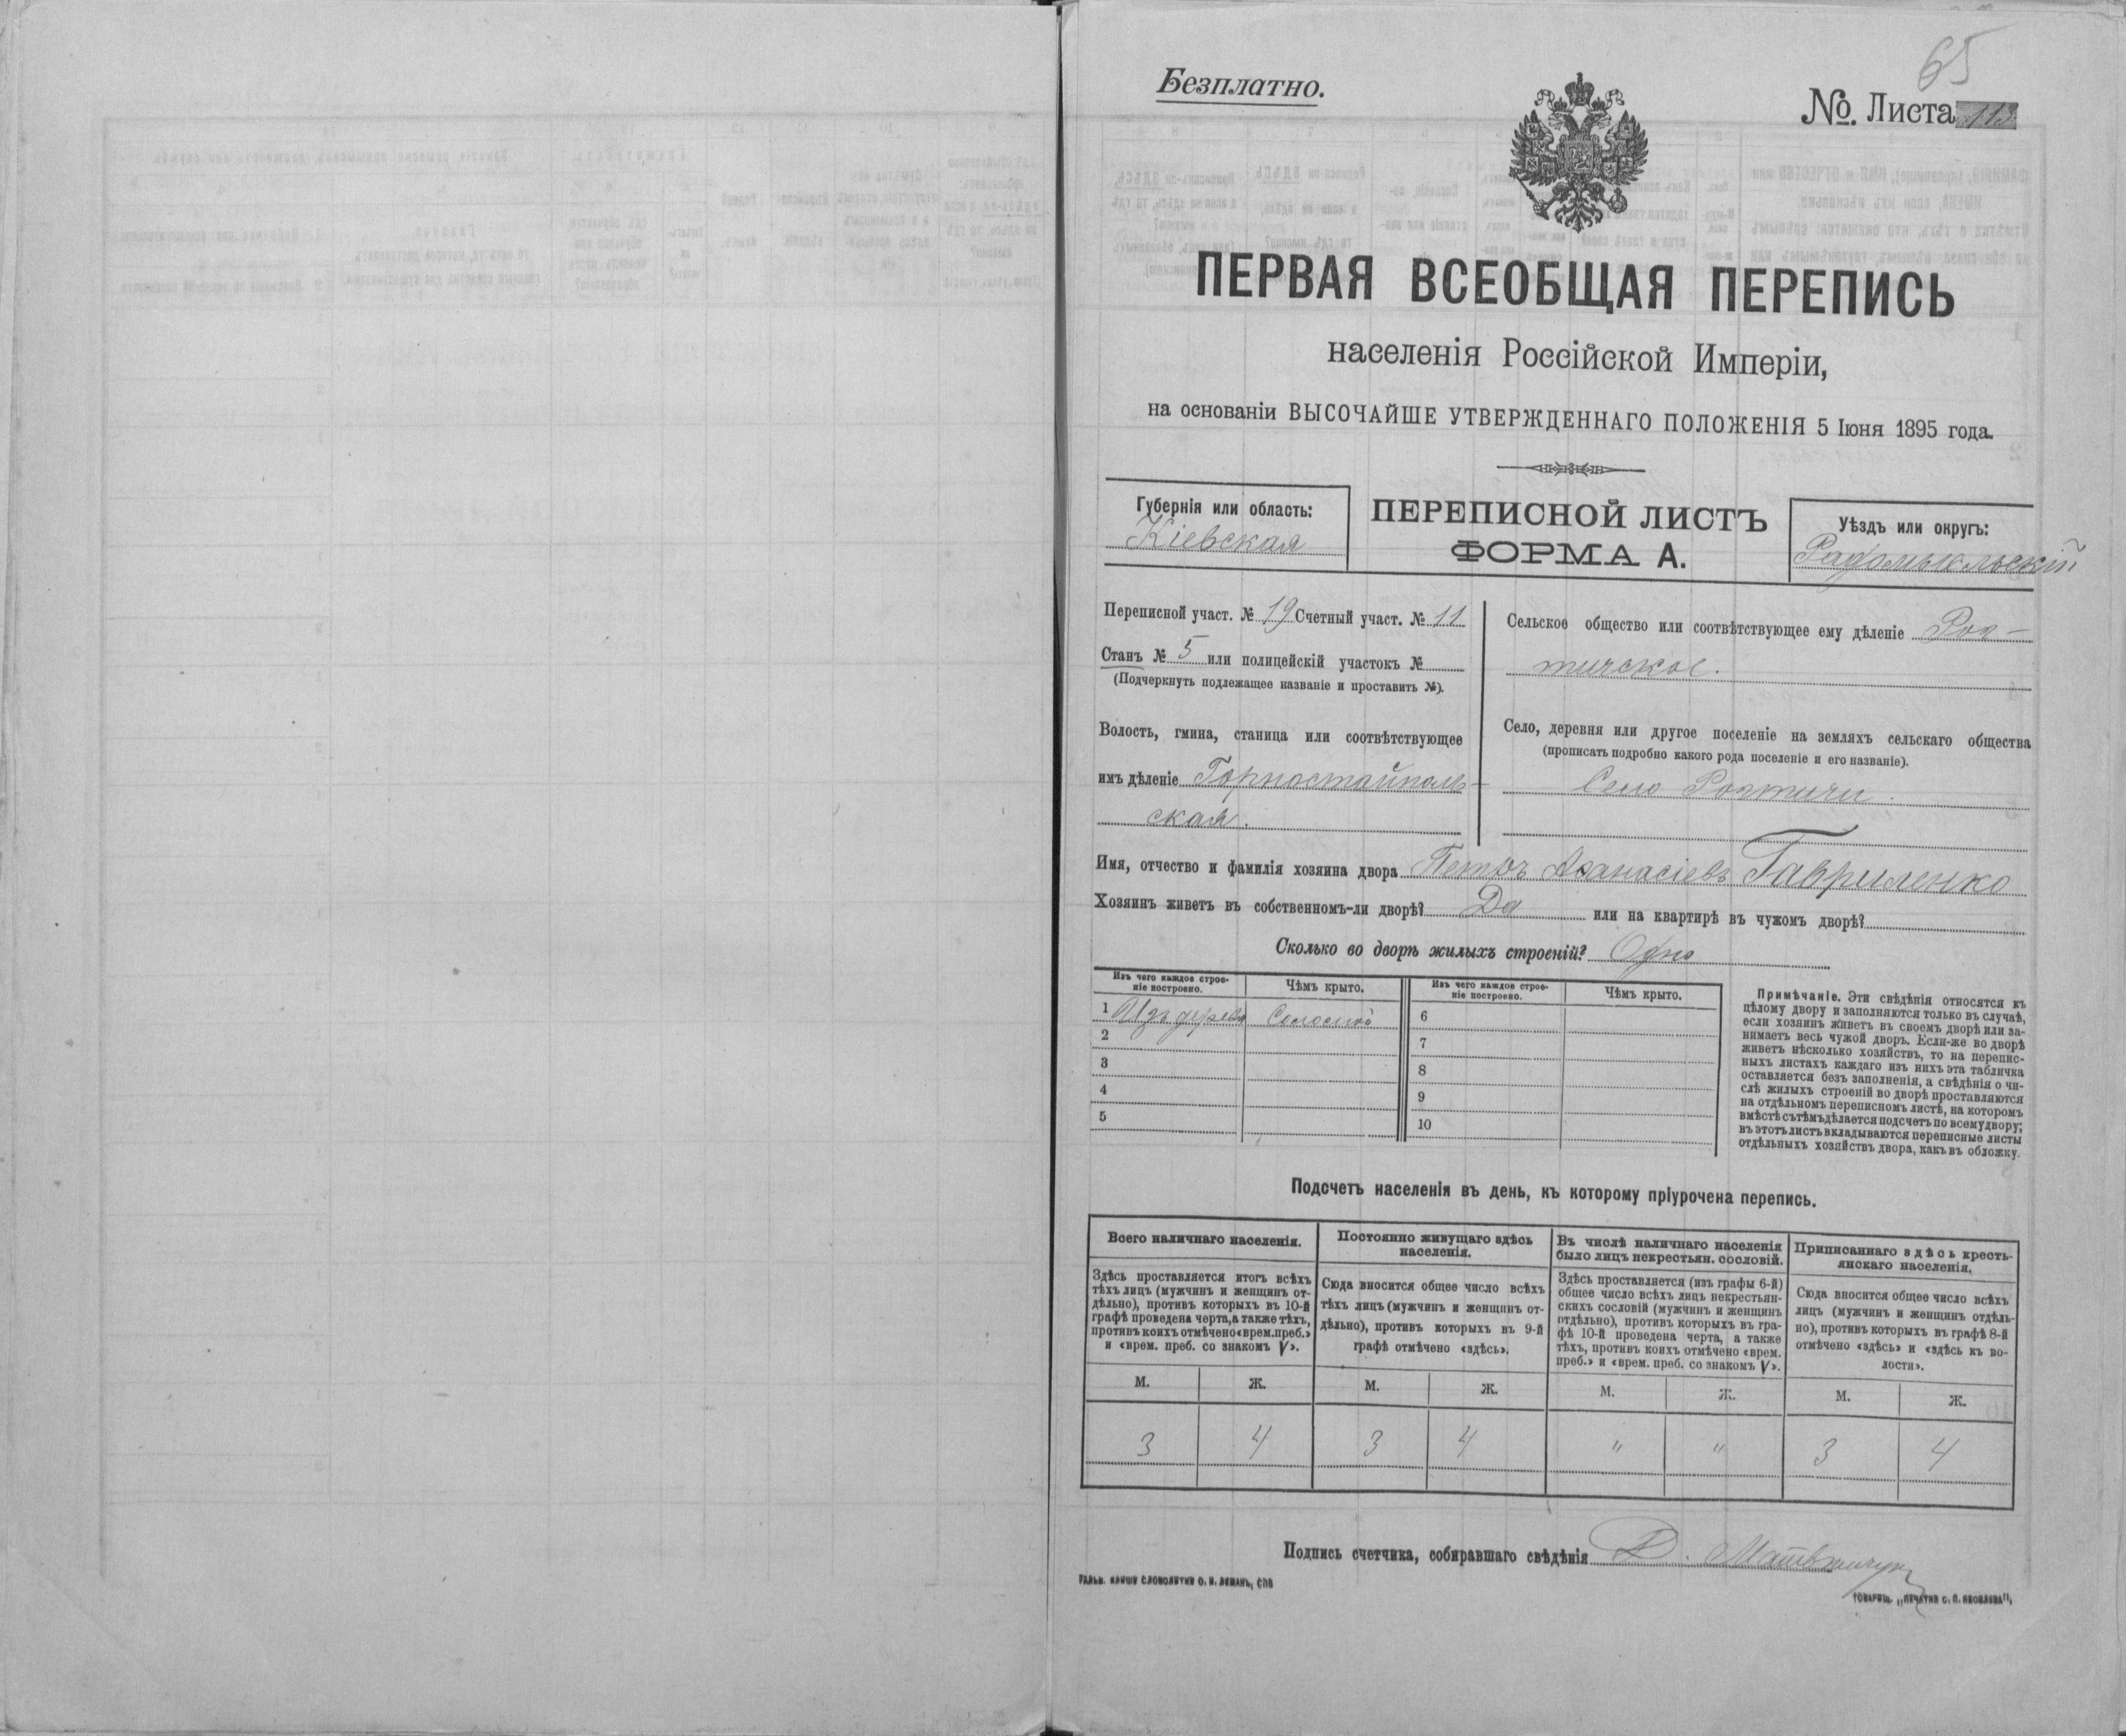 65
Безплатно.
№. Листа 113
ПЕРВАЯ ВСЕОБЩАЯ ПЕРЕПИСЬ
населенія Россійской Имперіи,
на основаніи ВЫСОЧАЙШЕ УТВЕРЖДЕННАГО ПОЛОЖЕНІЯ 5 Іюня 1895 года.
Губернія или область:
Кіевская
ПЕРЕПИСНОЙ ЛИСТЪ
ФОРМА А.
Уѣздъ или округъ:
Радомысльскій
Переписной участ. № 19 Счетный участ. № 11
Станъ № 5 или полицейскій участокъ №
(Подчеркнуть подлежащее названіе и проставить №).
Волость, гмина, станица или соотвѣтствующее
имъ дѣленіе Горностайполь-
ская.
Сельское общество или соотвѣтствующее ему дѣленіе
Село, деревня или другое поселеніе на земляхъ сельскаго общества
(прописать подробно какого рода поселеніе и его названіе).
Село
Имя, отчество и фамилія хозяина двора Петръ Аѳанасіевъ Гавриленко
Хозяинъ живетъ въ собственномъ-ли дворѣ? Да или на квартирѣ въ чужомъ дворѣ?
Сколько во дворѣ жилыхъ строеній? Одно
Изъ чего каждое строе-
ніе построено.
Чѣмъ крыто.
Изъ чего каждое строе-
ніе построено.
Чѣмъ крыто.
1 Изъ дерева Соломой
2
3
4
5
6
7
8
9
10
Примѣчаніе. Эти свѣдѣнія относятся къ
цѣлому двору и заполняются только въ случаѣ,
если хозяинъ живетъ въ своемъ дворѣ или за-
нимаетъ весь чужой дворъ. Если-же во дворѣ
живетъ нѣсколько хозяйствъ, то на перепис-
ныхъ листахъ каждаго изъ нихъ эта табличка
оставляется безъ заполненія, а свѣдѣнія о чи-
слѣ жилыхъ строеній во дворѣ проставляются
на отдѣльномъ переписномъ листѣ, на которомъ
вмѣстѣ съ тѣмъ дѣлается подсчетъ по всему двору;
въ этотъ листъ вкладываются переписные листы
отдѣльныхъ хозяйствъ двора, какъ въ обложку.
Подсчетъ населенія въ день, къ которому пріурочена перепись.
Всего наличнаго населенія.
Здѣсь проставляется итогъ всѣхъ
тѣхъ лицъ (мужчинъ и женщинъ от-
дѣльно), противъ которыхъ въ 10-й
графѣ проведена черта, а также тѣхъ,
противъ коихъ отмѣчено «врем. преб.»
и «врем. преб. со знакомъ V».
М. Ж.
3 4
Постоянно живущаго здѣсь
населенія.
Сюда вносится общее число всѣхъ
тѣхъ лицъ (мужчинъ и женщинъ от-
дѣльно), противъ которыхъ въ 9-й
графѣ отмѣчено «здѣсь».
М. Ж.
3 4
Въ числѣ наличнаго населенія
было лицъ некрестьян. сословій.
Здѣсь проставляется (изъ графы 6-й)
общее число всѣхъ лицъ некрестьян-
скихъ сословій (мужчинъ и женщинъ
отдѣльно), противъ которыхъ въ гра-
фѣ 10-й проведена черта, а также
тѣхъ, противъ коихъ отмѣчено «врем.
преб.» и «врем. преб. со знакомъ V».
М. Ж.
" "
Приписаннаго здѣсь кресть-
янскаго населенія.
Сюда вносится общее число всѣхъ
лицъ (мужчинъ и женщинъ отдѣль-
но), противъ которыхъ въ графѣ 8-й
отмѣчено «здѣсь» и «здѣсь къ во-
лости».
М. Ж.
3 4
Подпись счетчика, собиравшаго свѣдѣнія
ГАЛЬВ. КЛИШЕ СЛОВОЛИТНИ О. И. ЛЕМАНЪ, СПБ
ТОВАРИЩ. „ПЕЧАТНЯ С. П. ЯКОВЛЕВА",